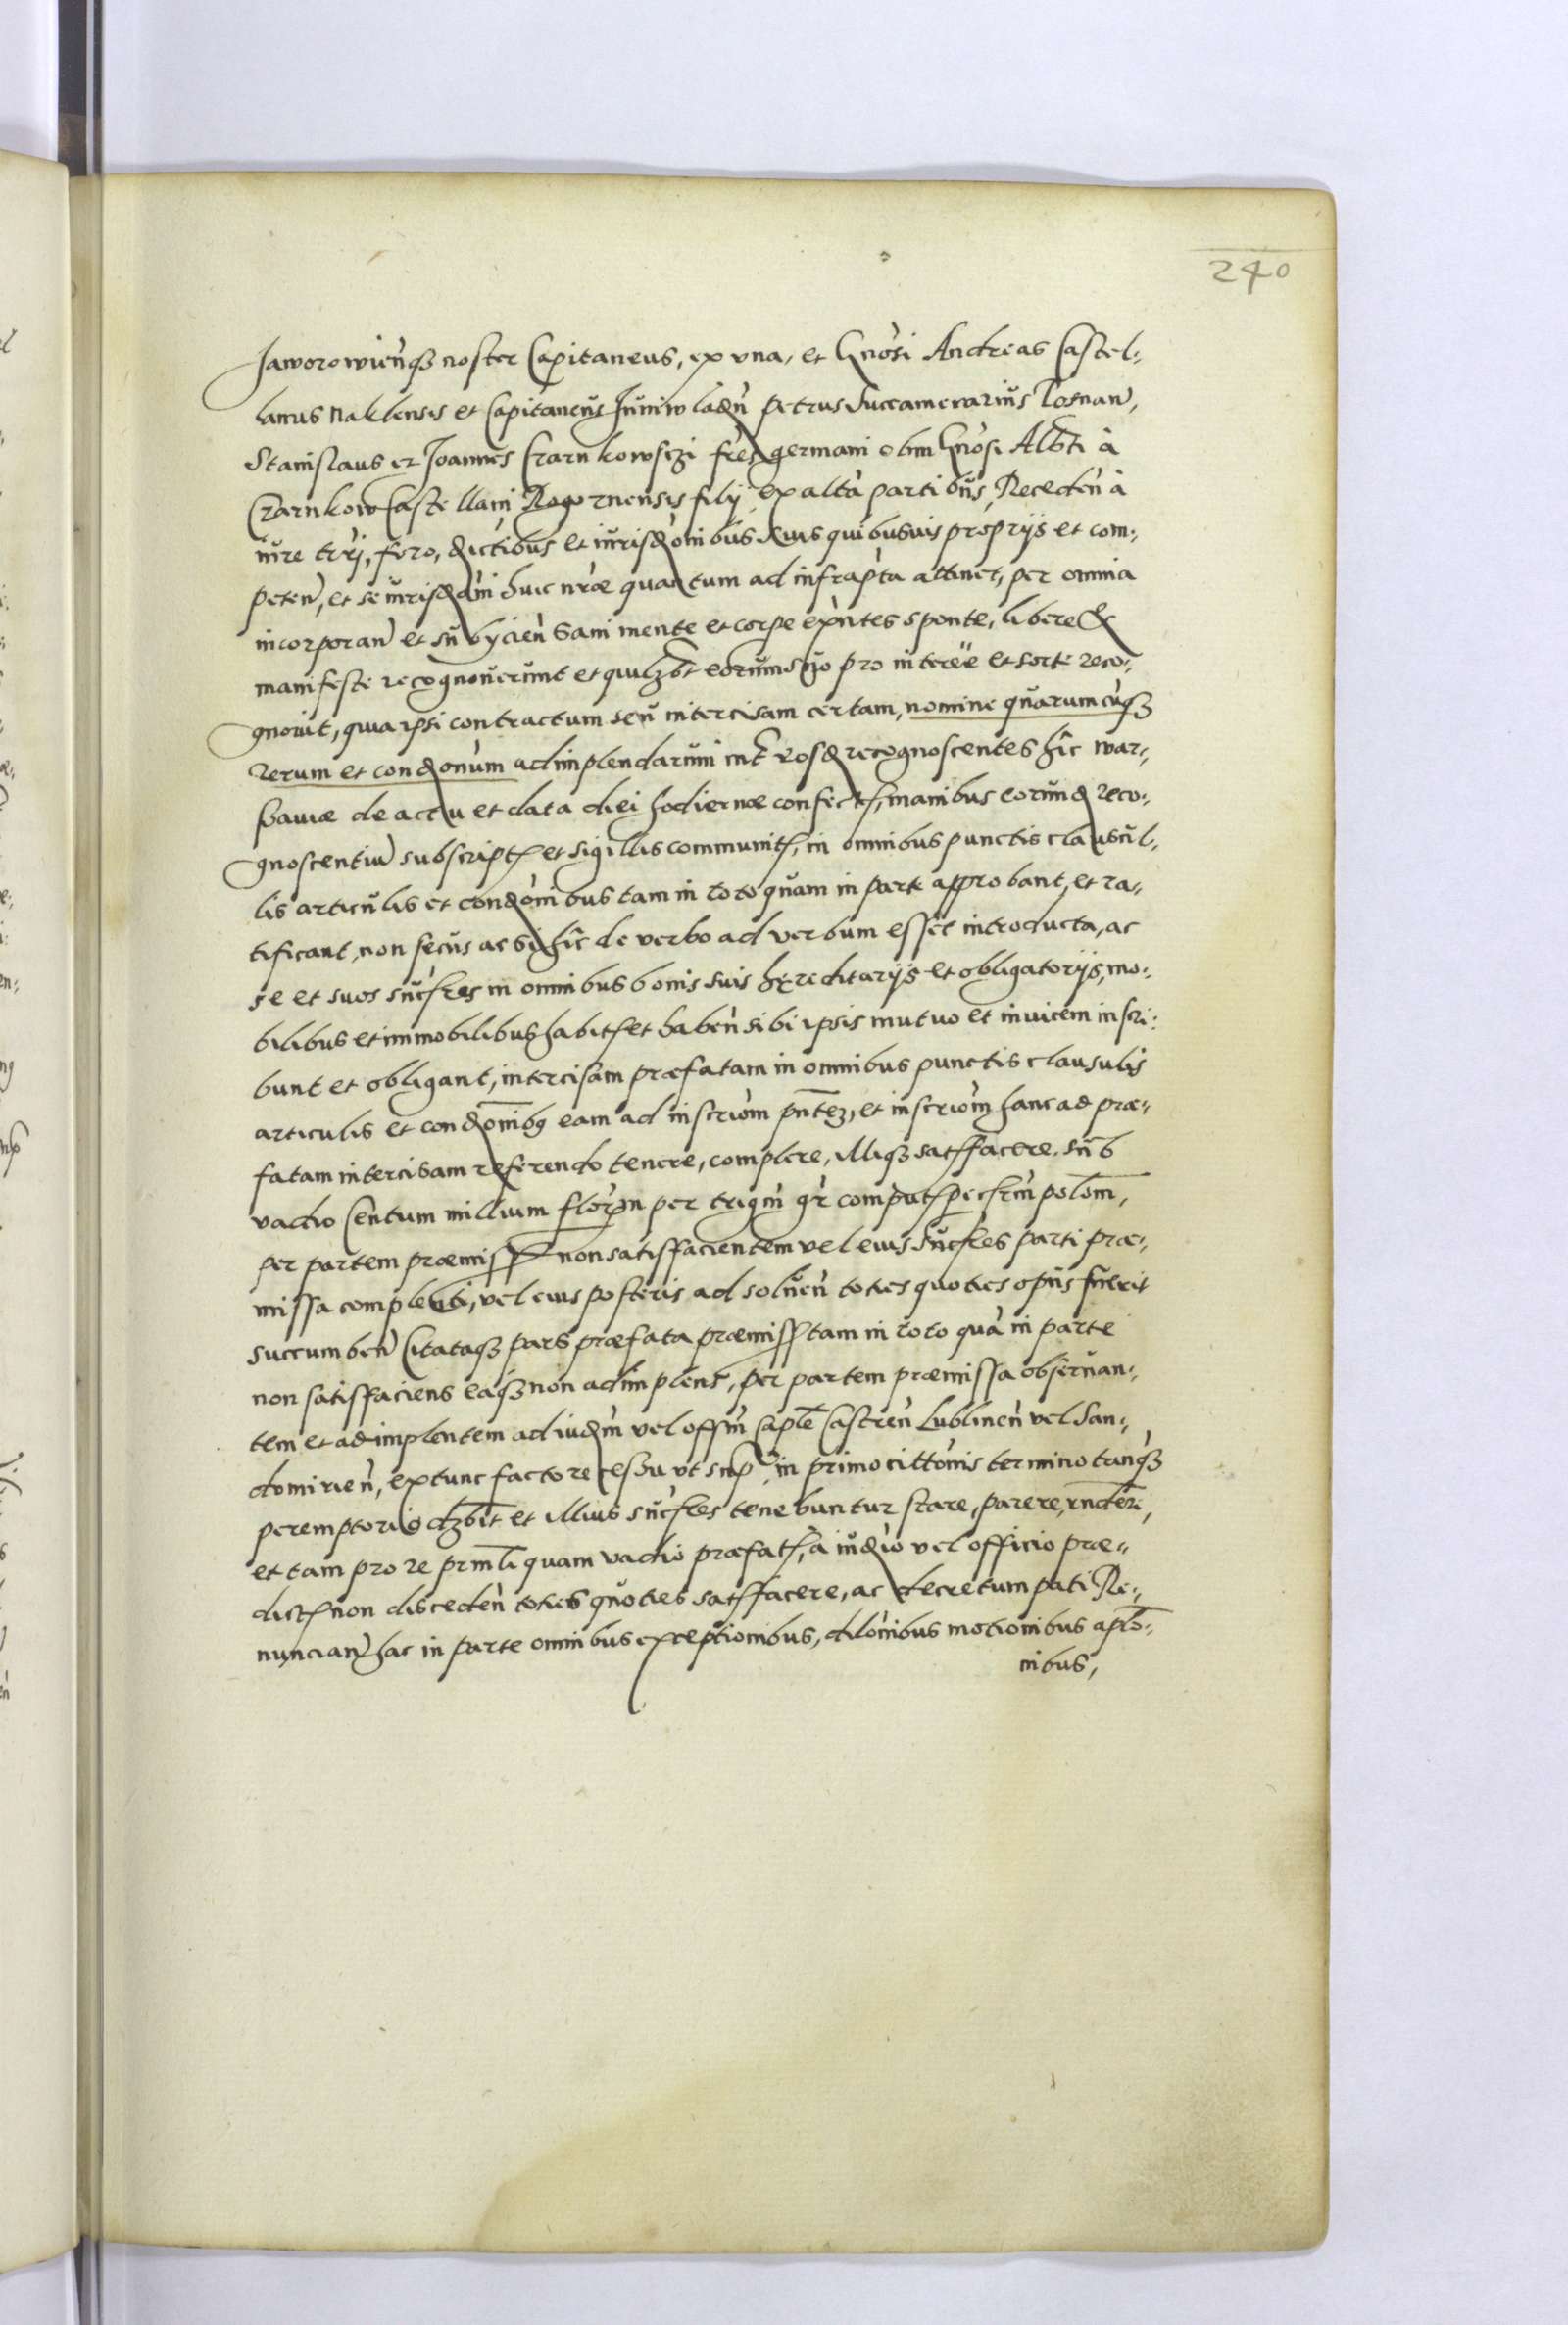 240
Jaworowień̃q₃ noster Capitaneus, ex vna, et Gnosi Andreas Castel-
lanus Naklensis et Capitaneus Juniwladń Petrus Succamerarius Posnań,
Stanislaus et Joannes Czarnkowsczi frẽs germani olim Gnosi Albti à
Czarnkow Castellani Rogoznensis filij, ex altà partibus, Recedeń à
iure trri, foro, dictibus et iurisdonibus suis quibusuis proprijs et com-
peteń, et se iurisdoni huic nrae quantum ad infrapta attinet, per omnia
incorporań et subycień sani mente et corpe exńtes sponte, libere &
manifeste recognouerunt et quilzbt eorum suo pro interee et sorte reco-
gnouit, quia ipsi contractum seu intercisam certam, nomine quarumcuq₃
rerum et condonum adimplendarum int eosd recognoscentes hîc War-
sauiae de actu et data diei hodiernae confect, manibus eorund reco-
gnoscentium subscript et sigillis communit, in omnibus punctis clausul-
lis articulis et condonibus tam in toto quam in parte approbant, et ra-
tificant, non secus ac si hîc de verbo ad verbum esset introducta, ac
se et suos sucsres in omnibus bonis suis hęreditarijs et obligatorijs, mo-
bilibus et immobilibus habit et habeń sibi ipsis mutuo et inuicem inscri-
bunt et obligant, intercisam praefatam in omnibus punctis clausulis
articulis et condonibg eam ad inscriom pntez, et inscriom hanc ad prae-
fatam intercisam referendo tenere, complere, illiq₃ satsfacere. sub
vadio Centum millium florm per trigm gr computs pecrm polom,
per partem praemiss non satisfacientem vel eius sucsres parti prae-
missa complenti, vel eius posteris ad soluen toties quoties opus fuerit
succumbeń Citataq₃ pars praefata praemiss tam in toto quà in parte
non satisfaciens eaq₃ non adimplens, per partem praemissa obseruan-
tem et adimplentem ad iudm vel offm Caple Castreń Lublineń vel San-
domirień, extunc facto recessu vt sup, in primo cittonis termino tanq₃
peremptorio dzbit et illius sucsres tenebuntur stare, parere, rndere,
et tam pro re prnli quam vadio praefat, à iudio vel officio prae-
dict non discedeń toties quoties satsfacere, ac decretum pati Re-
nuncian hac in parte omnibus exceptionibus, dilonibus motionibus aplo-
nibus,